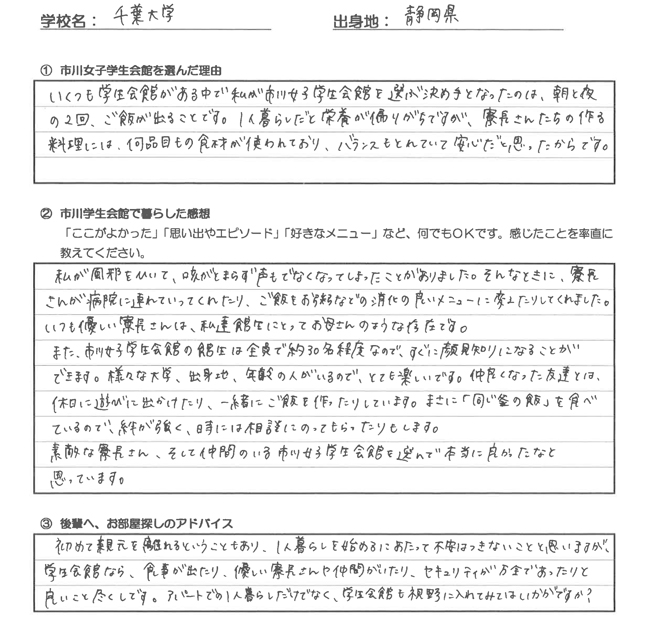 学校名： 千葉大学 出身地： 静岡県
① 市川女子学生会館を選んだ理由
いくつも学生会館がある中で私が市川女子学生会館を選ぶ決め手となったのは、朝と夜
の2回、ご飯が出ることです。1人暮らしだと栄養が偏りがちですが、寮長さんたちの作る
料理には、何品目もの食材が使われており、バランスもとれていて安心だと思ったからです。
② 市川学生会館で暮らした感想
「ここがよかった」「思い出やエピソード」「好きなメニュー」など、何でもOKです。感じたことを率直に
教えてください。
私が風邪をひいて、咳がとまらず声もでなくなってしまったことがありました。そんなときに、寮長
さんが病院に連れていってくれたり、ご飯をお粥などの消化の良いメニューに変えたりしてくれました。
いつも優しい寮長さんは、私達館生にとってお母さんのような存在です。
また、市川女子学生会館の館生は全員で約30名程度なので、すぐに顔見知りになることが
できます。様々な大学、出身地、年齢の人がいるので、とても楽しいです。仲良くなった友達とは、
休日に遊びに出かけたり、一緒にご飯を作ったりしています。まさに「同じ釜の飯」を食べ
ているので、絆が強く、時には相談にのってもらったりもします。
素敵な寮長さん、そして仲間のいる市川女子学生会館を選んで本当に良かったなと
思っています。
③ 後輩へ、お部屋探しのアドバイス
初めて親元を離れるということもあり、1人暮らしを始めるにあたって不安はつきないことと思いますが、
学生会館なら、食事が出たり、優しい寮長さんや仲間がいたり、セキュリティが万全であったりと
良いこと尽くしです。アパートでの1人暮らしだけでなく、学生会館も視野に入れてみてはいかがですか？